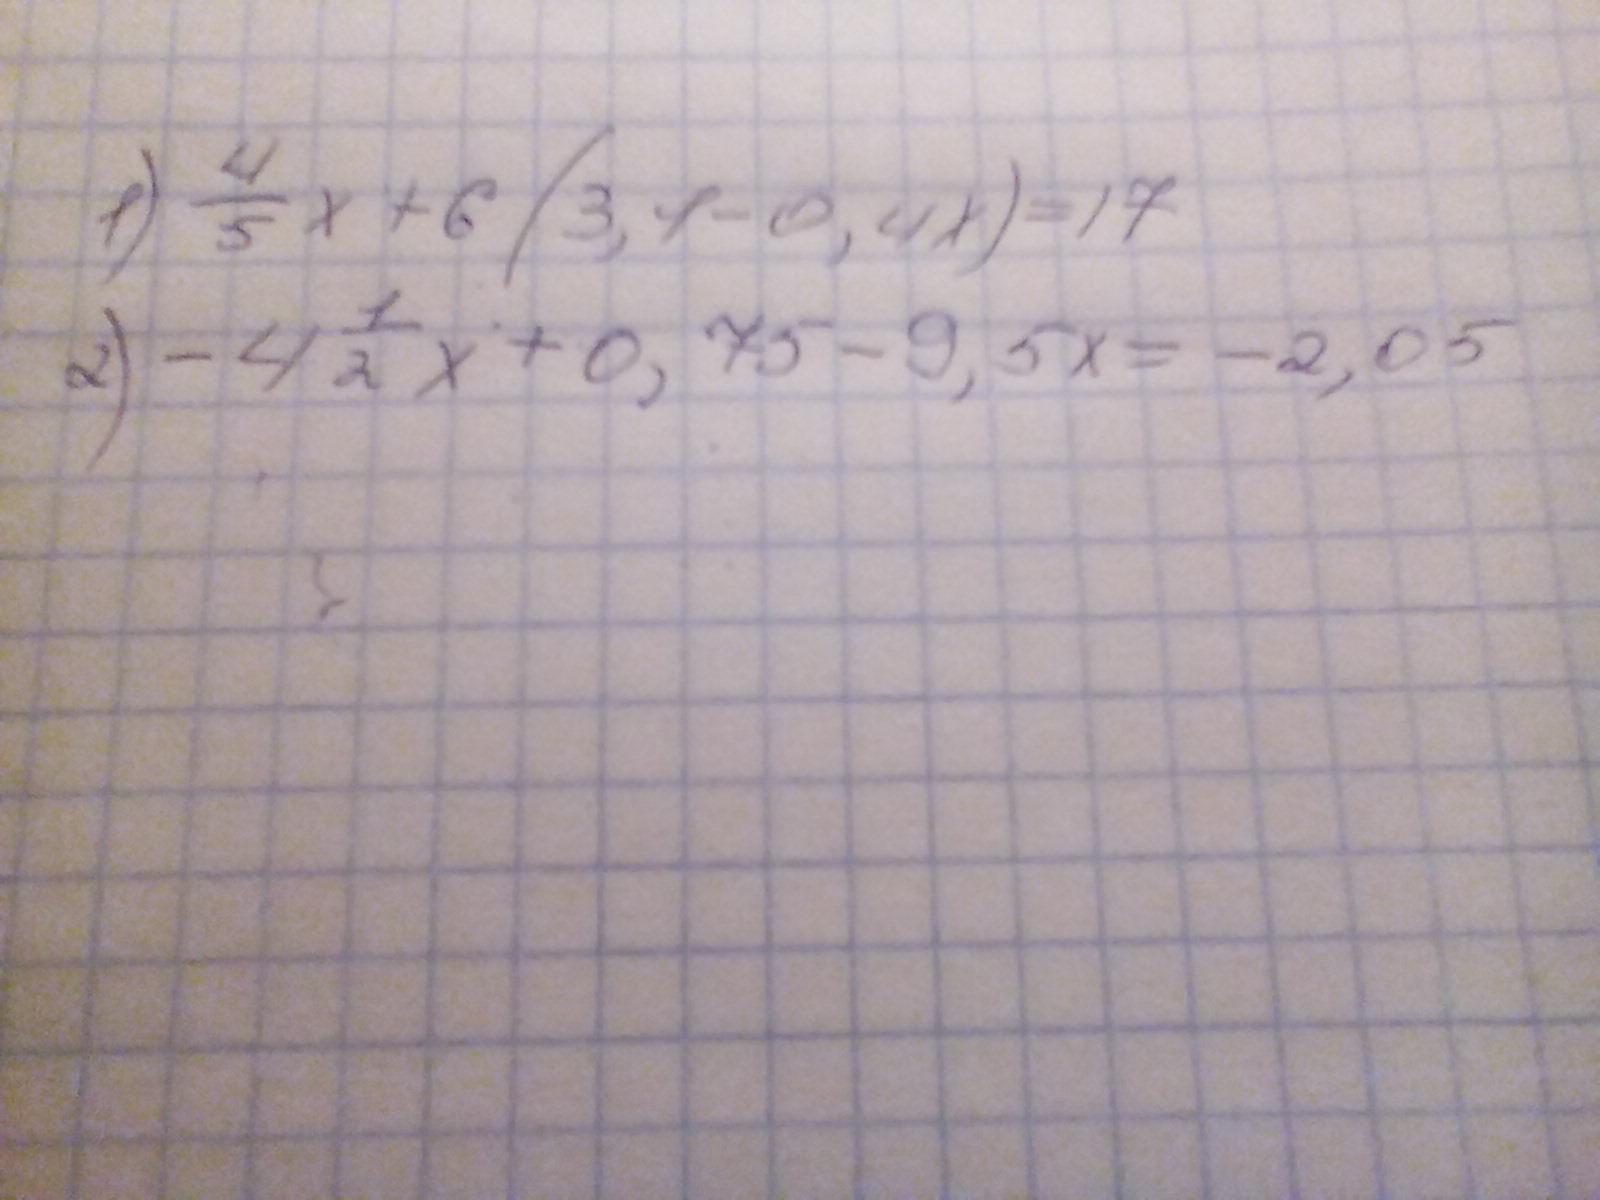 1) 4/5 x + 6 (3,1 - 0,4x) = 17
2) - 4 1/2 x + 0,75 - 9,5x = - 2,05